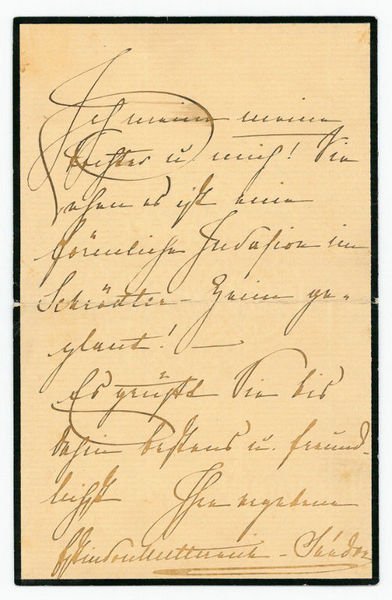 Ich meine meine
Tochter u mich! Sie
sehen es ist eine
förmliche Invasion im
Schrödter-Heim ge-
plant! —
Es grüßt Sie bis
dahin bestens u. freund-
lichst Ihre ergebene